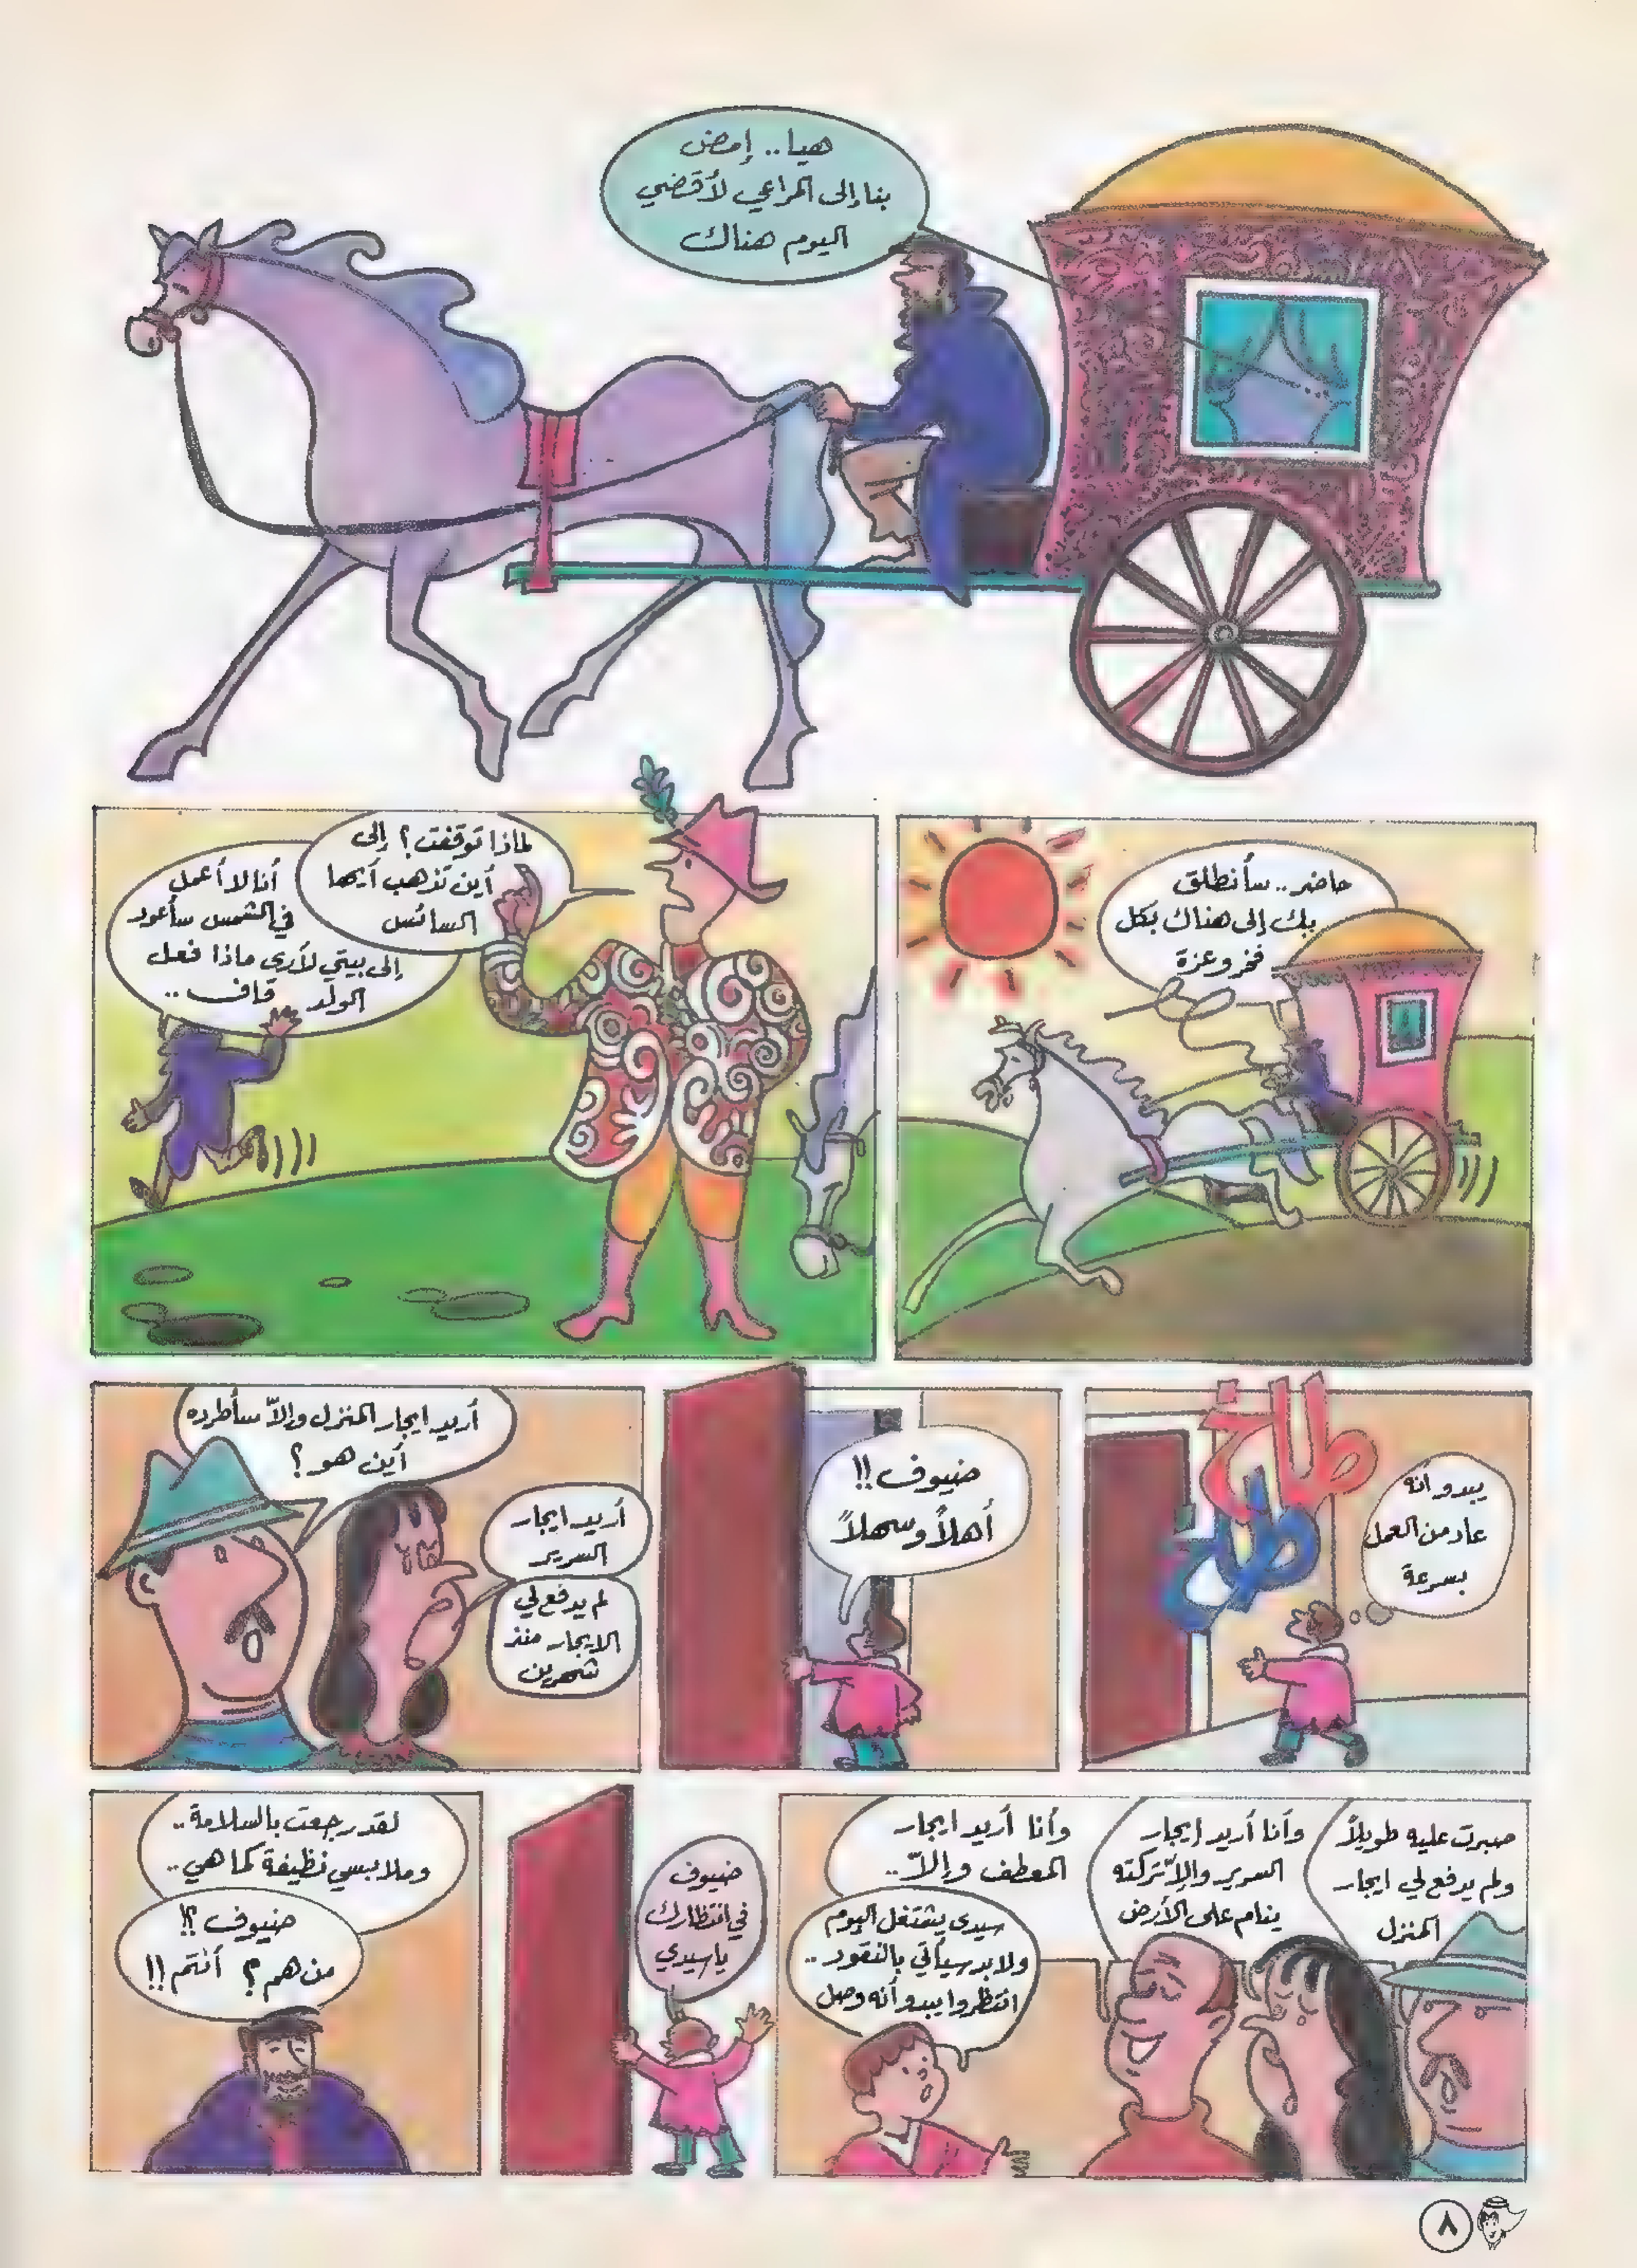 هيا.. إمض
بنا إلى المراعي لأقضي
اليوم هناك
حاضر.. سأنطلق
بك إلى هناك بكل
فخر وعزة
لماذا توقفت؟ إلى
أين تذهب أيها
السائس
أنا لا أعمل
في الشمس سأعود
إلى بيتي لأرى ماذا فعل
الولد قاف..
يبدو انه
عاد من العمل
بسرعة
طاخ
طخ
ضيوف!!
أهلاً وسهلاً
أريد ايجار المنزل وإلاّ سأطرده
أين هو؟
أريد ايجار
السرير
لم يدفع لي
الايجار منذ
شهرين
صبرت عليه طويلاً
ولم يدفع لي ايجار
المنزل
وأنا أريد إيجار
السرير وإلاّ تركته
ينام على الأرض
وأنا أريد ايجار
المعطف وإلاّ..
سيدي يشتغل اليوم
ولابد سيأتي بالنقود..
انتظروا يبدو أنه وصل
ضيوف
في انتظارك
يا سيدي
لقد رجعت بالسلامة..
وملابسي نظيفة كما هي..
ضيوف؟!
من هم؟ أنتم!!
٨